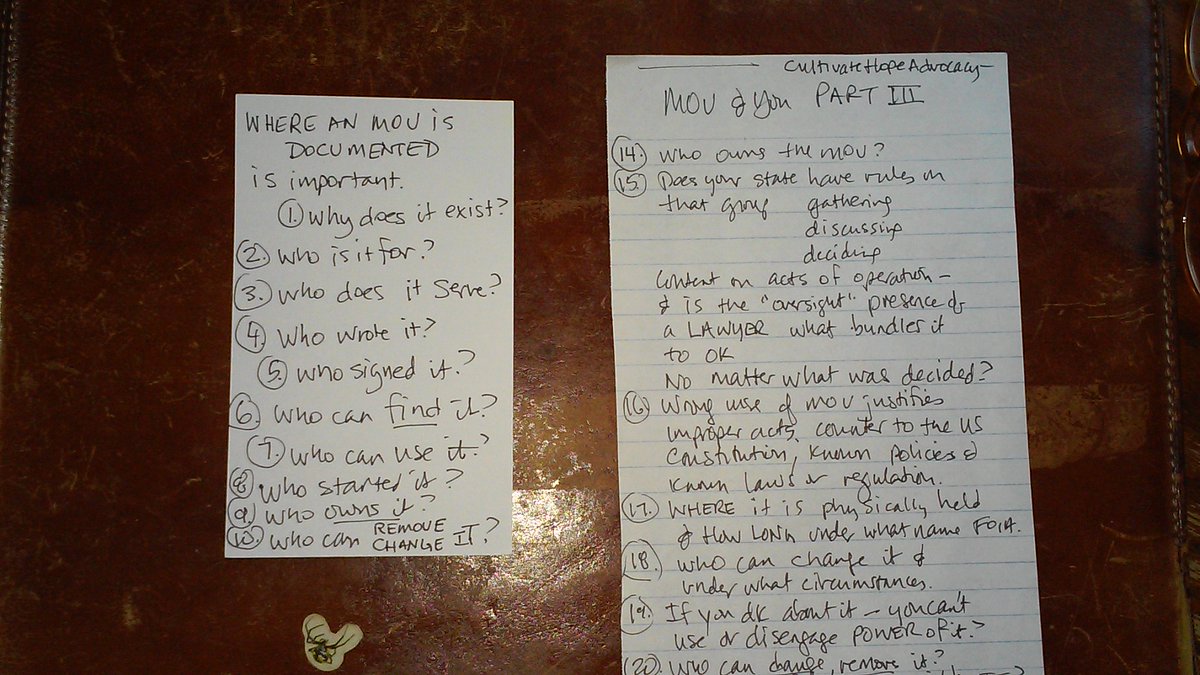 WHERE AN MOU iS
DOCUMENTED
is important.
① why does it exist?
②. who is it for?
③. who does it serve?
④ Who wrote it?
⑤. who signed it.?
⑥. who can find it?
⑦. who can use it?
⑧. who started it?
⑨. who owns it?
⑩. who can REMOVE
CHANGE IT?
CultivateHopeAdvocacy—
MOU & You PART III
⑭. who owns the MOU?
⑮. Does your state have rules on
that group gathering
discussing
deciding
Content on acts of operation —
& is the "oversight" presence of
a LAWYER what bundles it
to OK
No matter what was decided?
⑯ Wrong use of MOU justifies
improper acts, counter to the US
Constitution, known policies &
known laws or regulation.
⑰. WHERE it is physically held
& How LONG under what name FOIA.
⑱. who can change it &
under what circumstances.
⑲. If you dk about it — you can't
use or disengage POWER of it.?
⑳. Who can change, remove it?